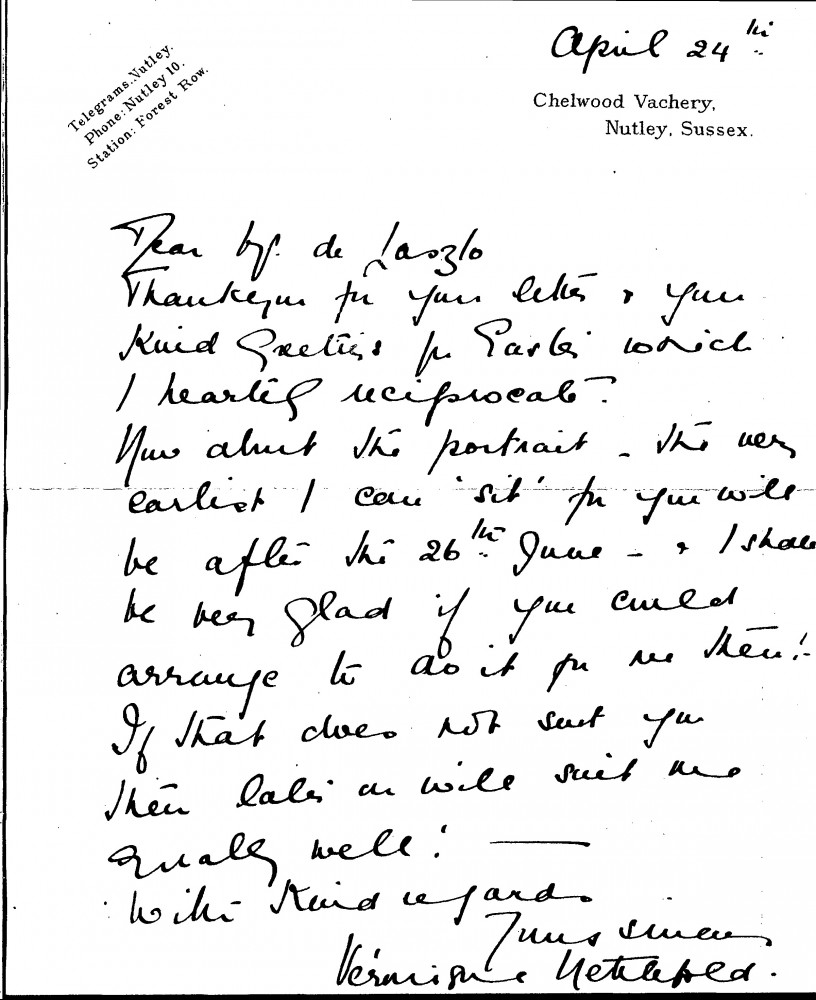 April 24th
Telegrams. Nutley.
Phone: Nutley 10.
Station: Forest Row.
Chelwood Vachery,
Nutley, Sussex.
Dear Mr. de Laszlo
Thank you for your letter & your
Kind Greetings for Easter which
I heartily reciprocate.
Now about the portrait – the very
earliest I can 'sit' for you will
be after the 26th June – & I shall
be very glad if you could
arrange to do it for me then! –
If that does not suit you
then later on will suit me
equally well! —
With Kind regards
Yours sincerely
Vèronique Nettlefold.